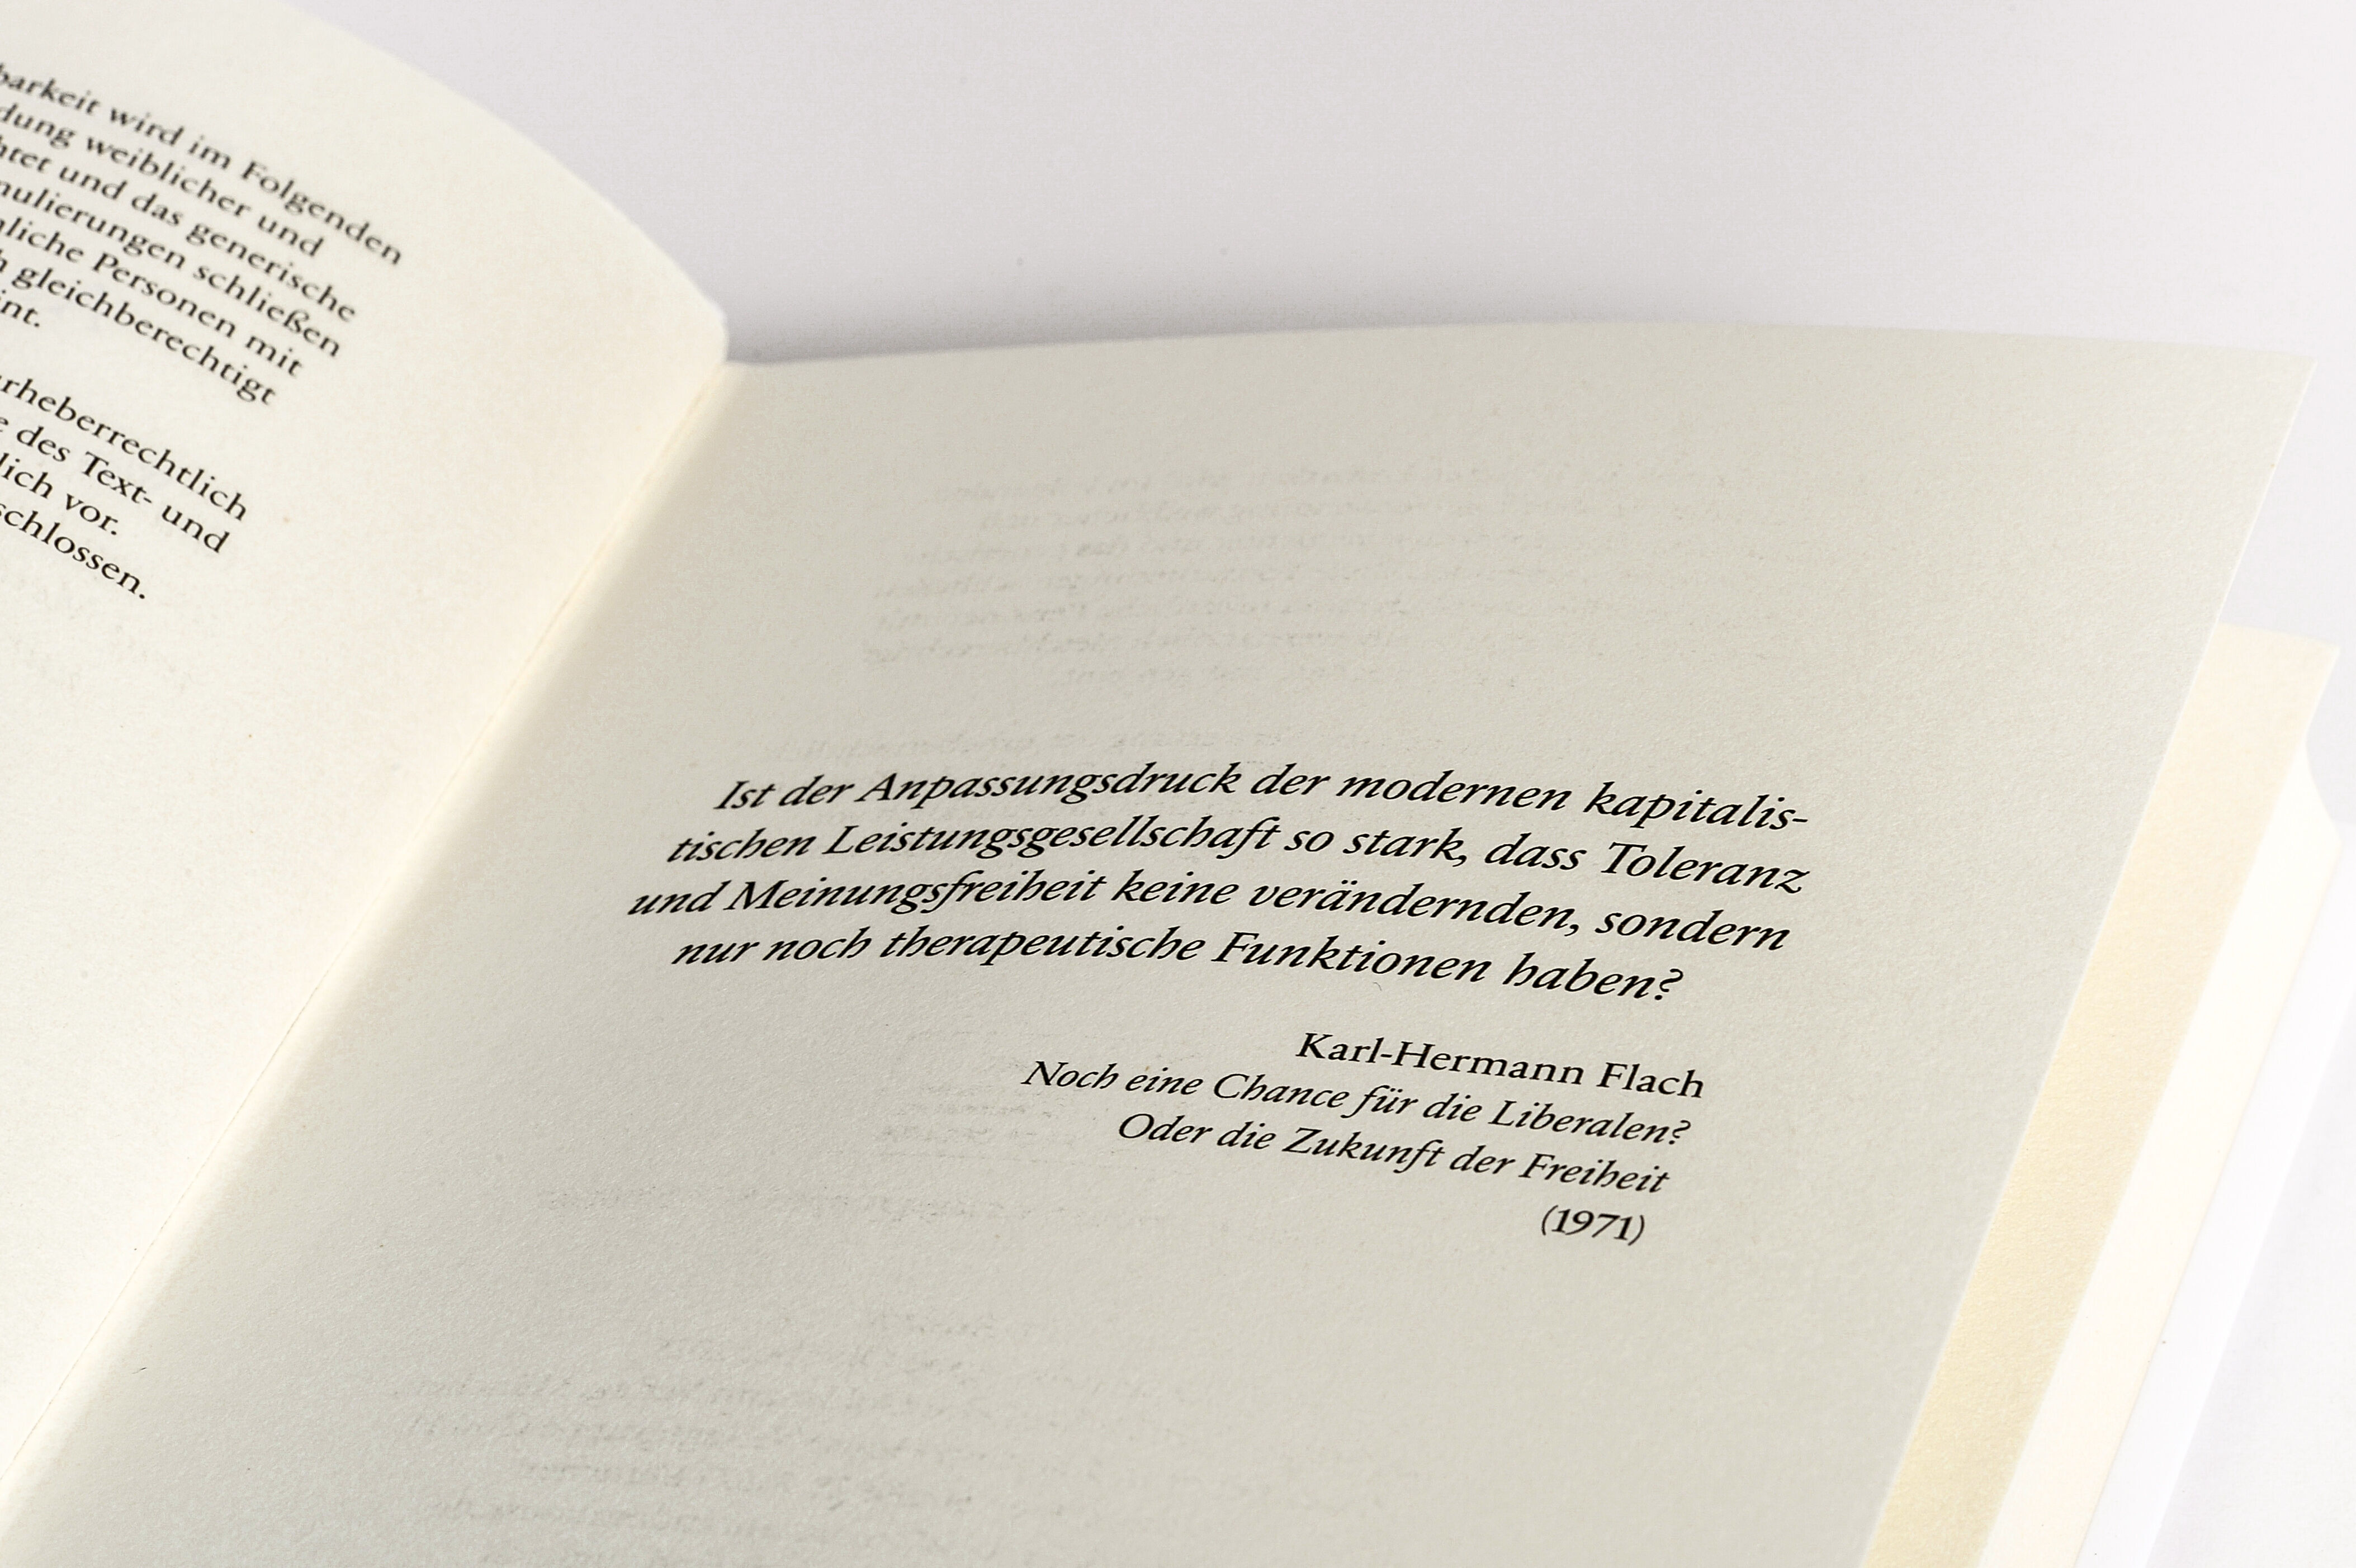 wird im Folgenden
weiblicher und
und das generische
schließen
Personen mit
gleichberechtigt
des Text- und
vor.
Ist der Anpassungsdruck der modernen kapitalis-
tischen Leistungsgesellschaft so stark, dass Toleranz
und Meinungsfreiheit keine verändernden, sondern
nur noch therapeutische Funktionen haben?
Karl-Hermann Flach
Noch eine Chance für die Liberalen?
Oder die Zukunft der Freiheit
(1971)